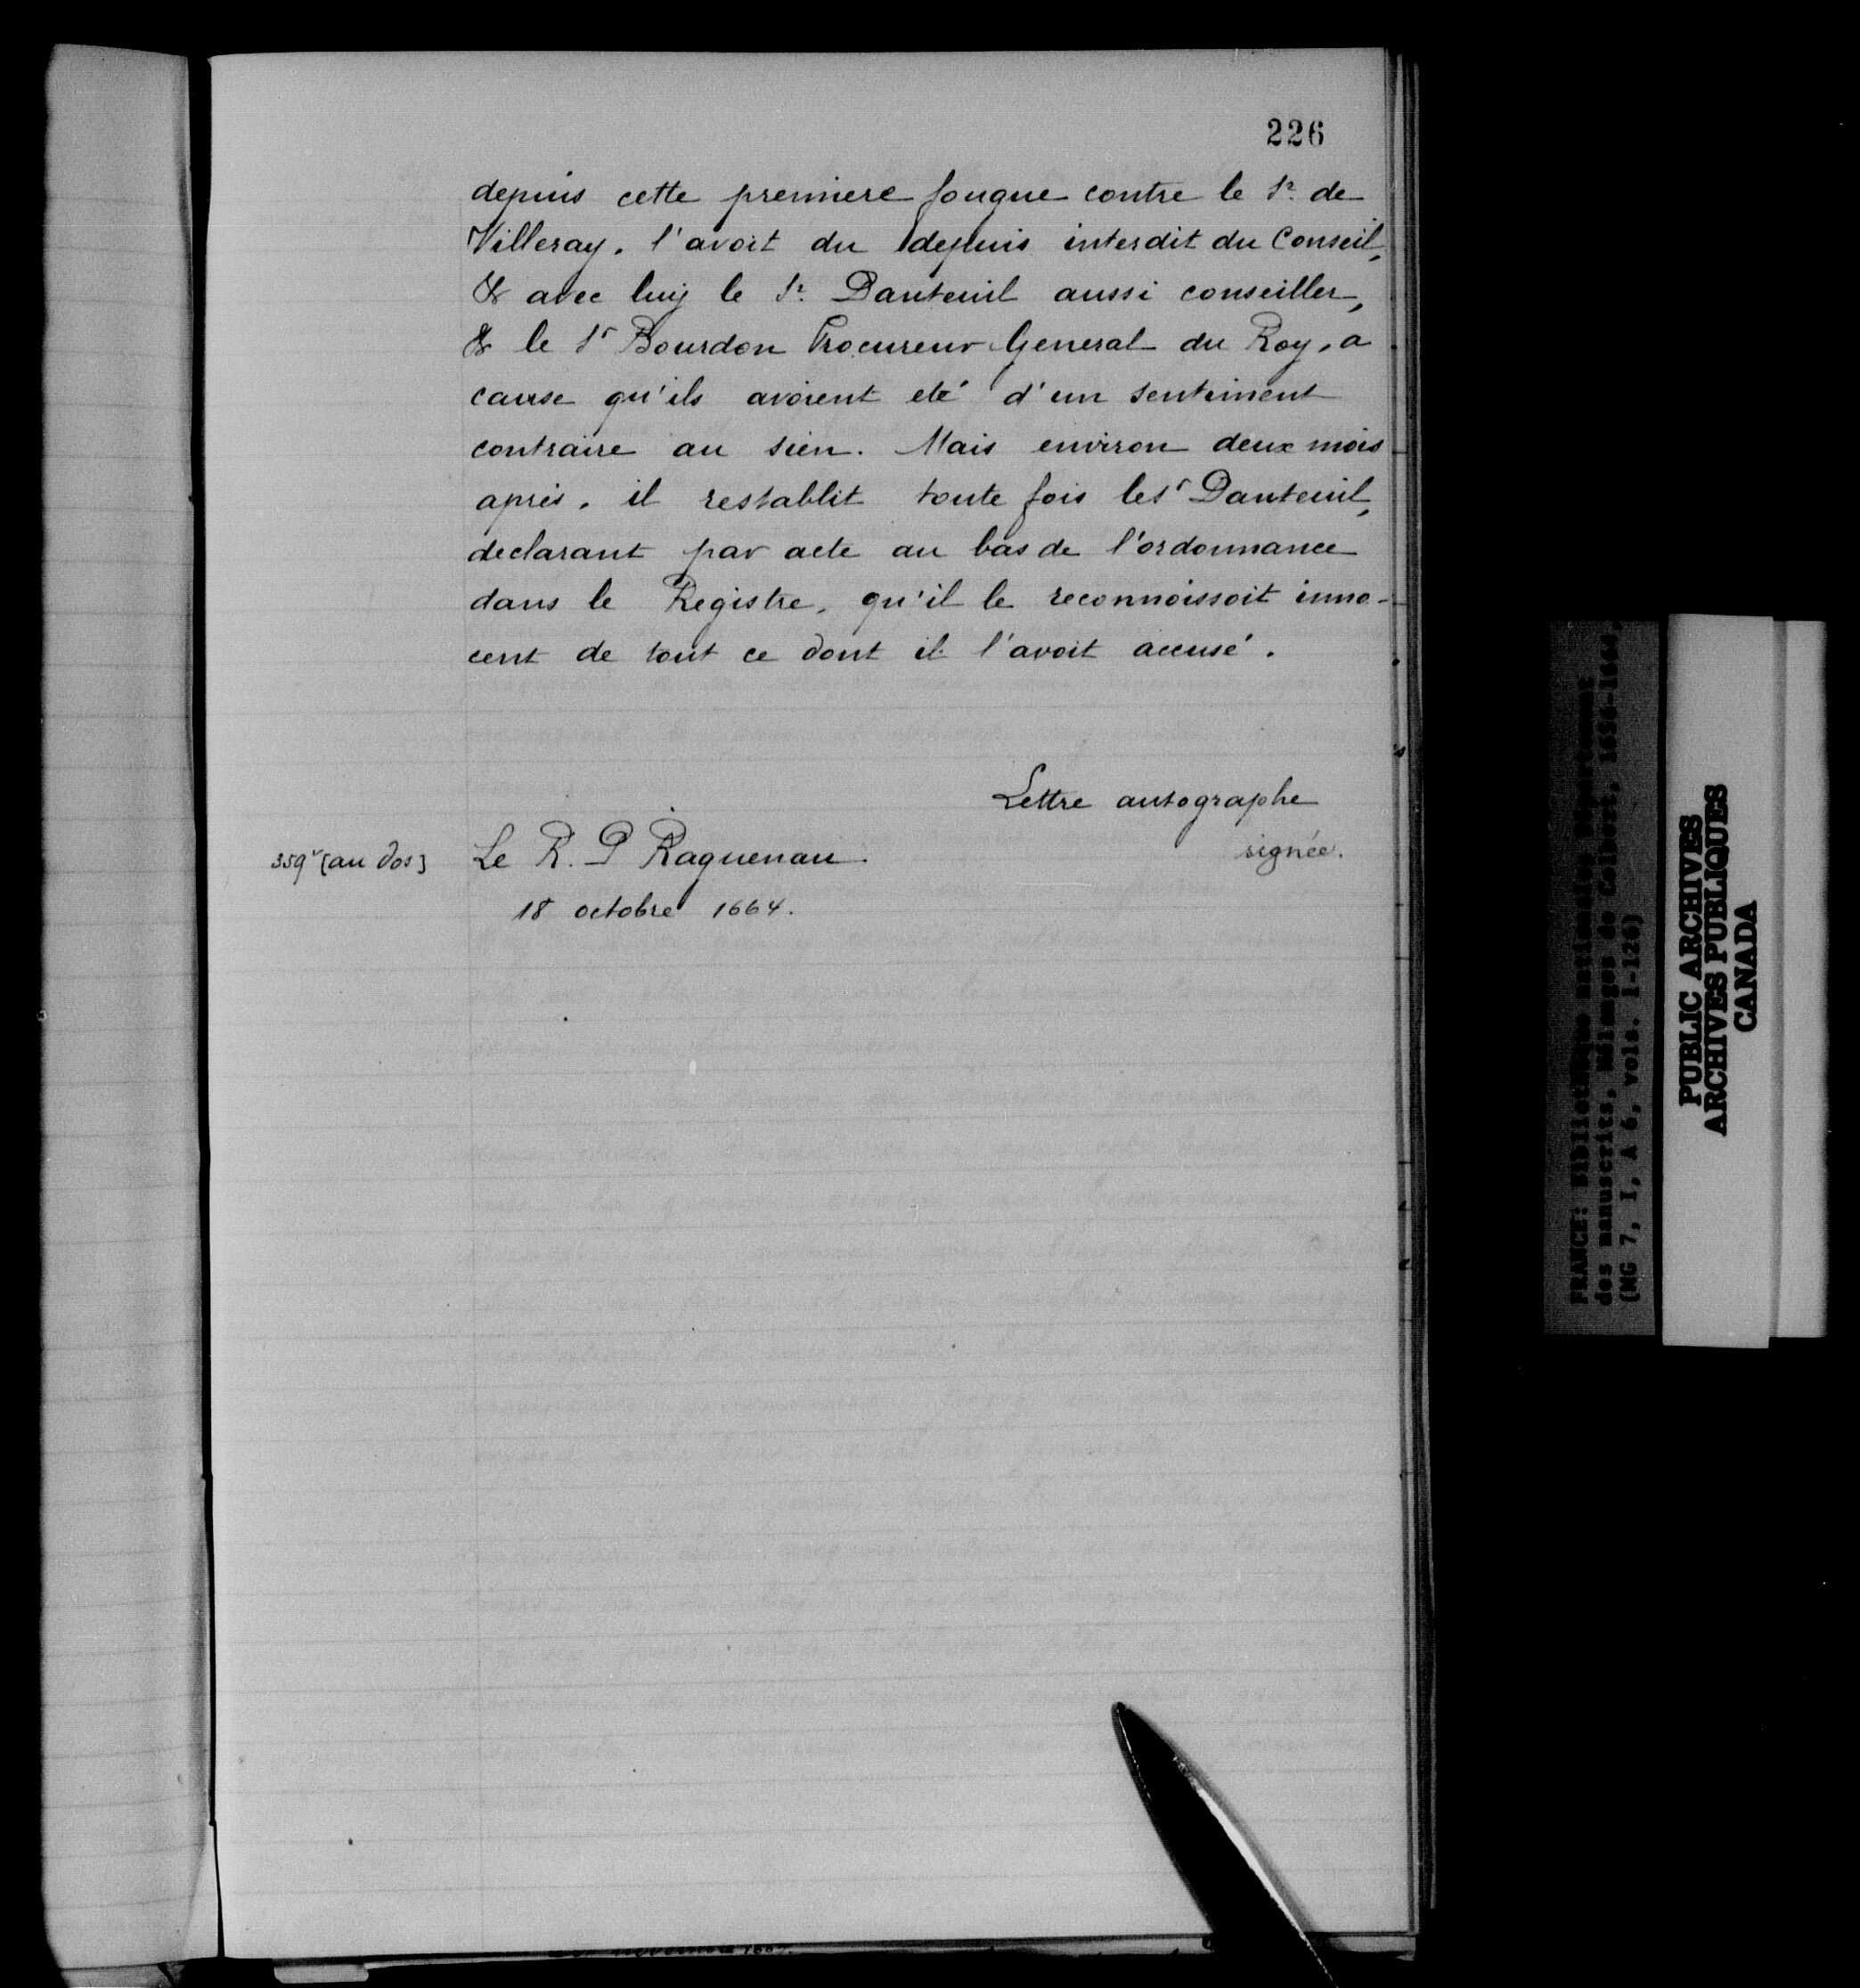 226
depuis cette premiere fougue contre le Sr. de
Villeray, l'avoit du depuis interdit du Conseil,
& avec luy le Sr. Dauteuil aussi conseiller,
& le Sr Bourdon Procureur General du Roy, a
cause qu'ils avoient eté d'un sentiment
contraire au sien. Mais environ deux mois
après, il restablit toute fois le Sr Dauteuil,
declarant par acte au bas de l'ordonnance
dans le Registre, qu'il le reconnoissoit inno-
cent de tout ce dont il l'avoit accusé.
Lettre autographe
signée.
359v [au dos] Le R. P Raguenau.
18 octobre 1664.
FRANCE: Bibliothèque nationale, Département
des manuscrits, Mélanges de Colbert, 1656-1664,
(MG 7, I, A 6, vols. 1-126)
PUBLIC ARCHIVES
ARCHIVES PUBLIQUES
CANADA